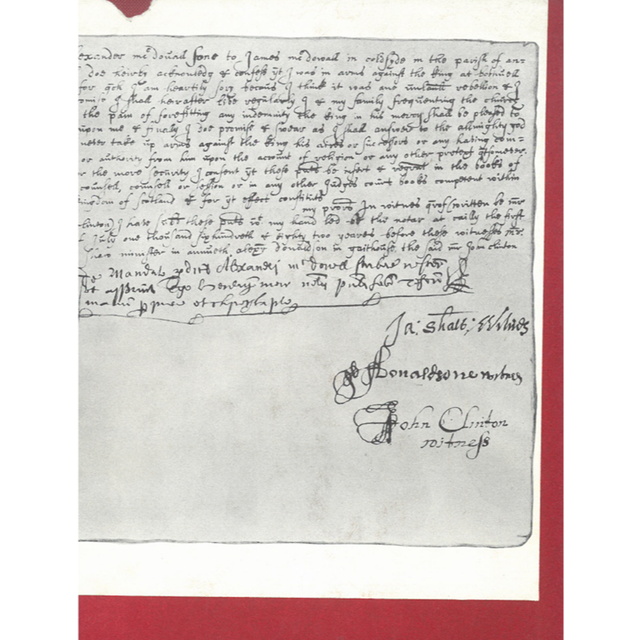 exander mcdouall sone to James mcdowall in coldsyde in the parish of an
doe heirby acknowledg & confess yt I was in arms against the King at bothwell
for qch I am heartily sory becaus I think it was ane unlaull rebellion & I
omise I shall herafter live regularly I & my family frequenting the church
the pain of forefitting any indemnity the King in his mercy shall be pleased to
upon me & finaly I doe promise & swear as I shall answer to the allmighty god
never take up arms against the King his aires or sucessors or any hating com
or authority from him upon the account of religion or any other pretext qtsomever
r the more security I consent yt these puts be insert & regrat in the books of
counsell, counsell or session or in any other Judges court books competent within
ingdom of scotland & for yt effect constituts
my prors In witnes qrof written be mr
clinton I have thes puts wt my hand led be the notar at cally the first
July one thousand sixhundreth & eighty two years before these witnesses mr.
minister in anwoth alexr Donaldson in gaithouse the said mr John clinton
De Mandato Alexandri mcdowell scribere
Ego henry mair
manu propria
Ja: witnes
Donaldsone witnes
John Clinton
witness